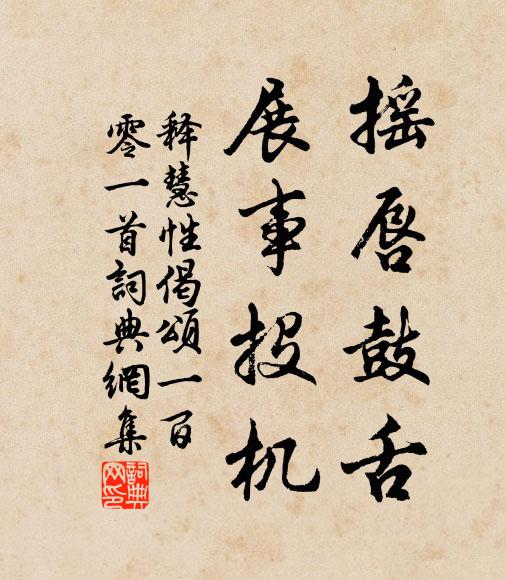 摇唇鼓舌
展事投机
释慧性偈颂一百
零一首詞典網集
詞典網印